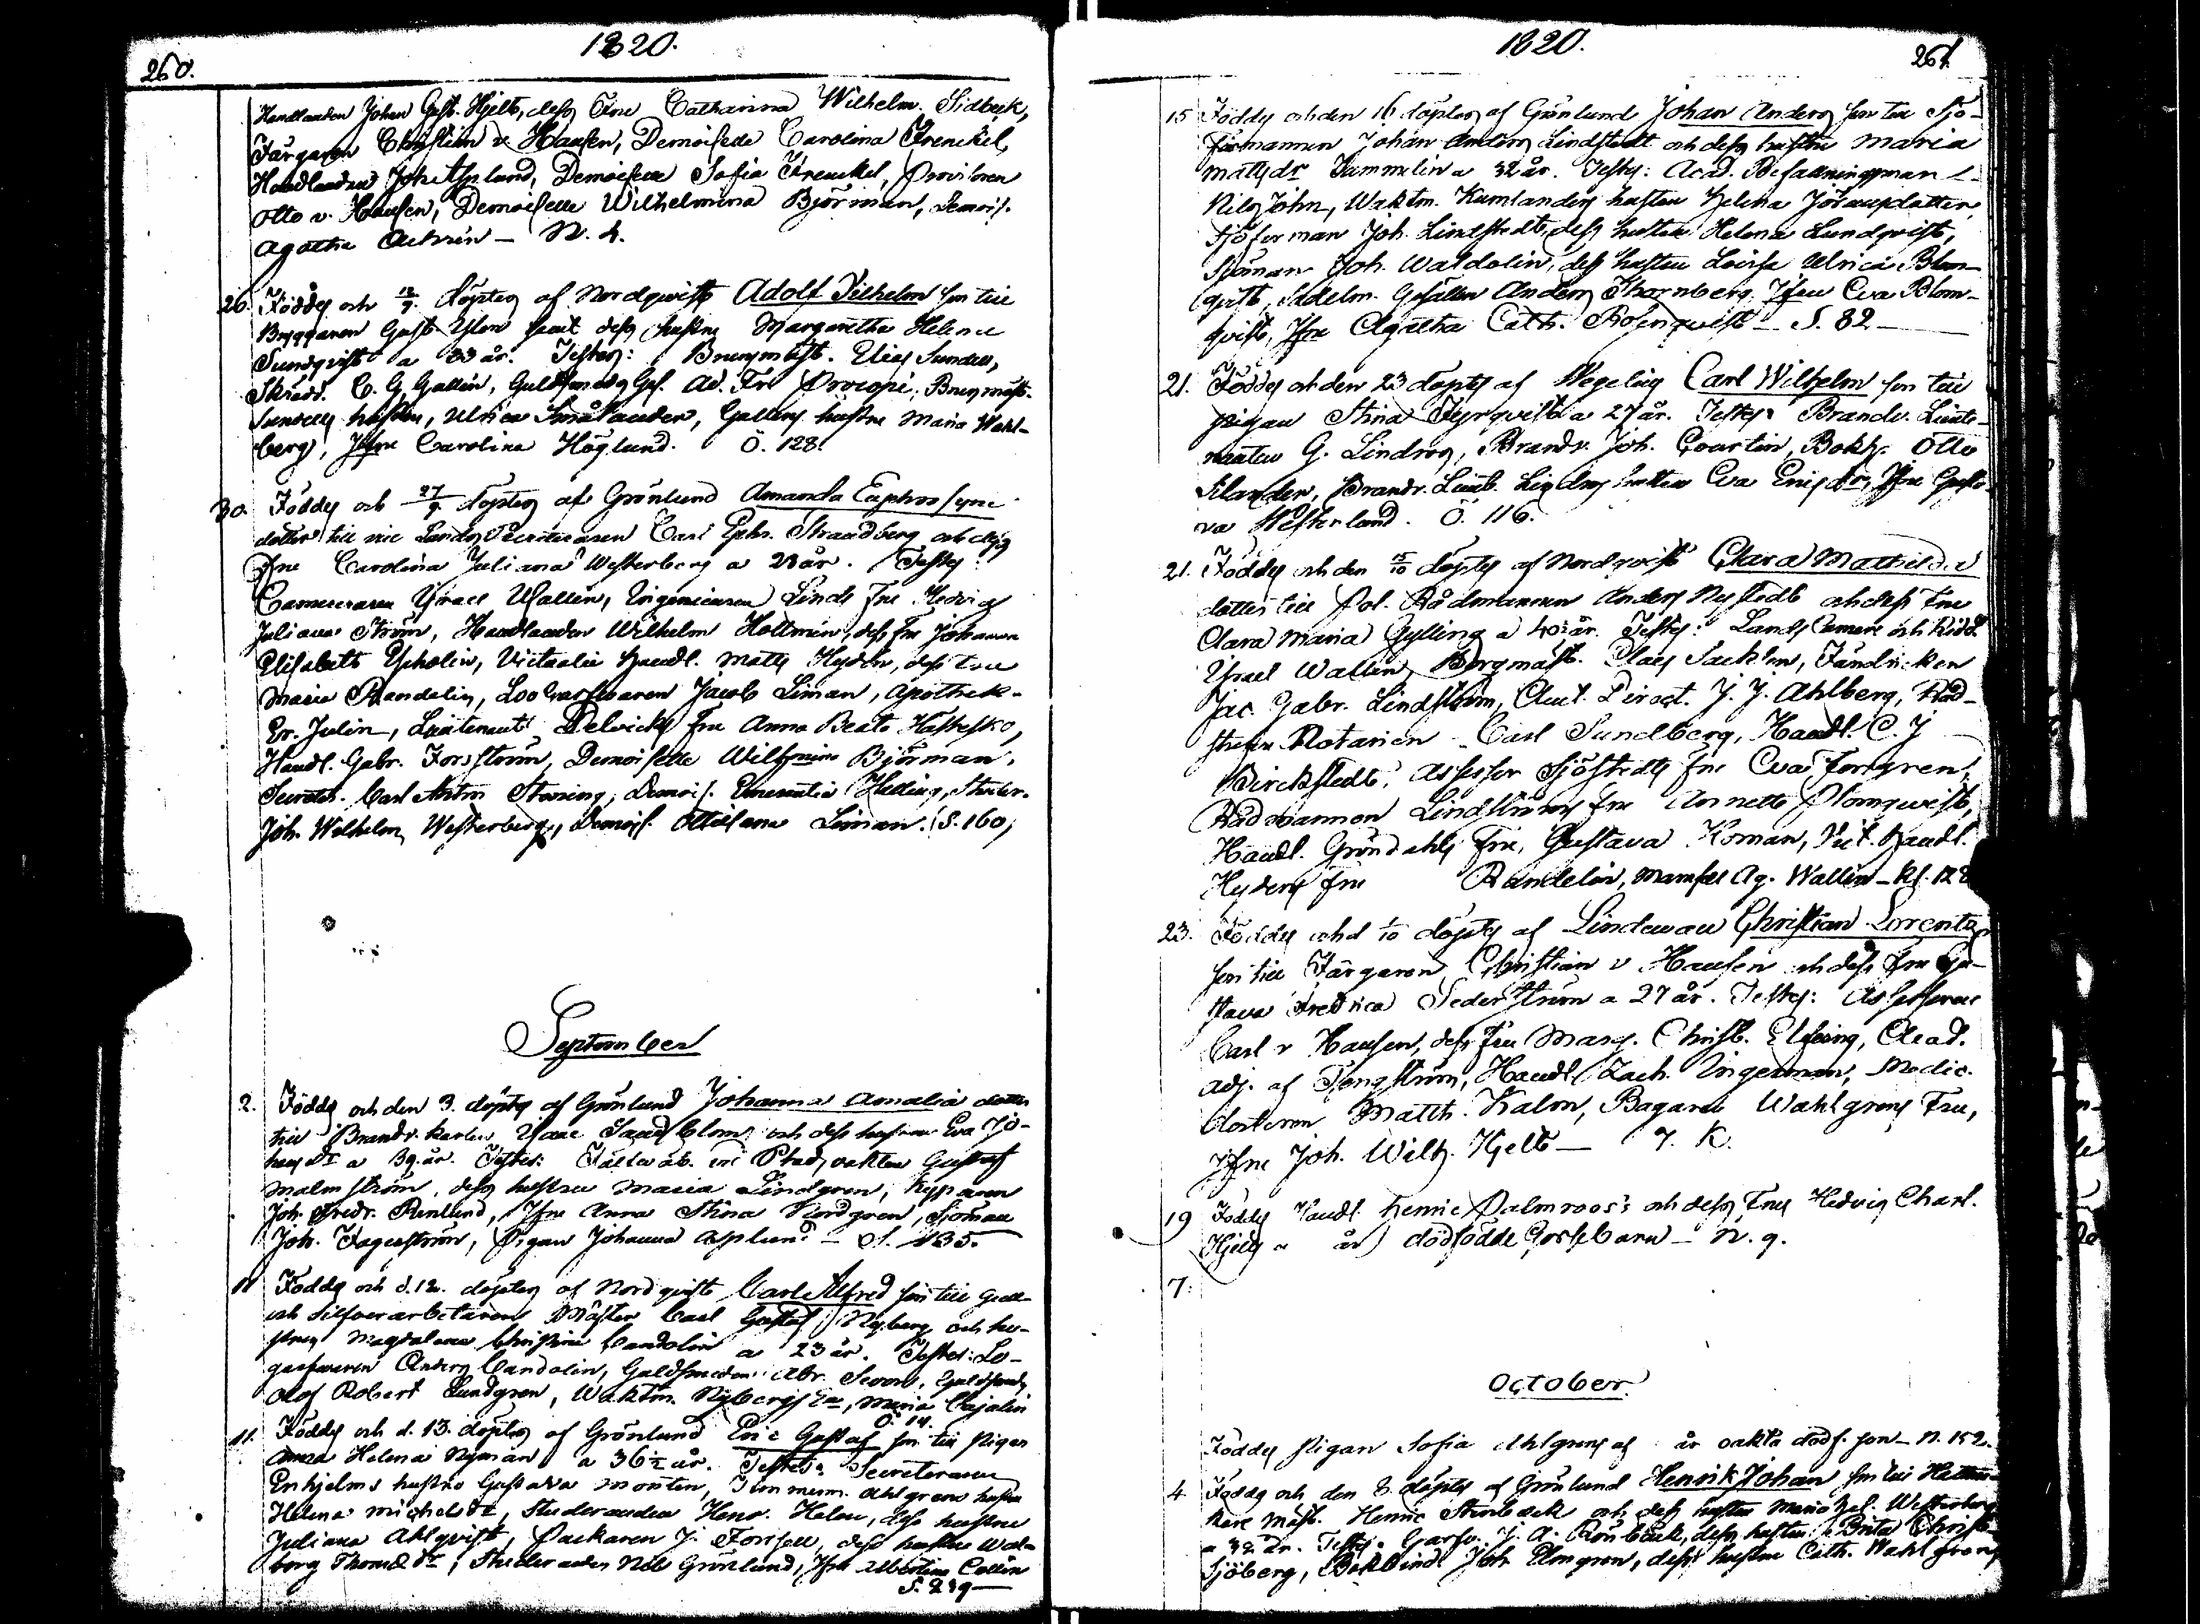 260.
1820.
Handlanden Johan Gust. Hjelt, dess Fru Catharina Wilhelm. Sidbeck,
Färgaren Christian v. Hausen, Demoiselle Carolina Frenckel,
Handlanden Joh. Asplund, Demoiselle Sofia Frenckel, Provisoren
Otto v. Hausen, Demoiselle Wilhelmina Björman, Demois.
Agatha — N. 4.
26. Föddes och 12/9 döptes af Nordqvist Adolf Vilhelm son till
Bryggaren Gust. samt dess hustru Margaretha Helena
Sundqvist a 33 år. Testes: Brunnmäst. Elias Sundell,
Skrädd. C. G. Gallén, Guldsmeds Ges. Ad. Fr. Procopé, Brunnmäst.
Sundells hustru, Ulrica Smålander, Galléns hustru Maria Wahl-
berg, Jfru Carolina Höglund. Ö. 128.
30. Föddes och 27/9 döptes af Grönlund Amanda Euphrosyne
dotter till vice Lands Secreteraren Carl Ephr. Strandberg och dess
Fru Carolina Juliana Westerberg a 28 år. Testes:
Camereraren Israel Wallin, Ingenieuren Linds Fru Hedvig
Juliana Ström, Handlanden Wilhelm Holtmén, dess Fru Johanna
Elisabeth Escholin, Victualie Handl. Matts Hydén, dess Fru
Maria Randelin, Jacob Liman, Apothek.
Er. Julin, Lieutenant Delvicks Fru Anna Beata Hästesko,
Handl. Gabr. Forsström, Demoiselle Wilhmina Björman,
Secret. Carl Anton Demois. Emerentia Helling, Studer.
Joh. Wilhelm Westerberg, Demois. Ottiliana Liman. S. 160,
September
2. Föddes och den 3. döptes af Grönlund Johanna Amalia dotter
till Brandv. karlen Isaac Sandblom och dess hustru Eva Jo-
hansdr a 39 år. Testes: Fältväb. vid Stads vakten Gustaf
Malmström, dess hustru Maria Lindgren, Kyparen
Joh. Fredr. Renlund, Jfru Anna Stina Nordgren, Sjöman
Joh. Fagerström, Pigan Johanna Asplund — 135.
11 Föddes och d. 12. döptes af Nordqvist Carl Alfred son till Guld-
och Silfverarbetaren Mäster Carl Gustaf Nyberg och hu-
strun Magdalena Christina Candolin a 23 år. Testes: Lo-
garfvaren Anders Candolin, Guldsmeden Abr. Guldsmed
Olof Robert Lundgren, Waktm. Nybergs Maria Cajalin
Ö. 14.
11. Föddes och d. 13. döptes af Grönlund Eric Gustaf son till Pigan
Anna Helena Nyman a 36 1/2 år. Testes: Secreteraren
Enhjelms hustru Gustava Montén, Ahlgrens hustru
Helena Michelsdr, Studeranden Henr. Helen, dess hustru
Juliana Ahlqvist, Packaren J. Forssell, dess hustru Wal-
borg Thomasdr, Studeranden Nils Grönlund, Jfru Albertina Collin
S. 239 —
1820.
261.
15 Föddes och den 16 döptes af Grönlund Johan Anders son till Sjö-
färmannen Johan Anders Lindstedt och dess hustru Maria
Mattsdr Tammelin a 32 år. Testes: Acad. Befallningsman
Nils John, Waktm. Kumlanders hustru Helena Jöransdotter,
Sjöferman Joh. Lindstedt, dess hustru Helena Lundqvist,
Sjöman Joh. Waldolin, dess hustru Lovisa Ulrica Blom-
qvist, Sadelm. Gesällen Anders Thornberg, Jfru Eva Blom-
qvist, Jfru Agatha Cath. Rosenqvist — S. 82 —
21. Föddes och den 23 döptes af Wegelius Carl Wilhelm son till
pigan Stina Fyrqvist a 27 år. Testes: Brandv. Lieute-
nanten G. Lindros, Brandv. Joh. Courtin, Bokh. Otto
Silander, Brandv. Lieut. Lindros hustru Eva Ericsdr, Jfru Gusta-
va Westerland. Ö. 116.
21. Föddes och den 15/10 döptes af Nordqvist Clara Mathilda
dotter till Pol. Rådmannen Anders Nystedt och dess Fru
Clara Maria Gylling a 40 1/2 år. Testes: Lands Camer. och Ridd.
Israel Wallin, Borgmäst. Claes Sacklen, Fändricken
Jac. Gabr. Lindström, Cant. Direct. J. J. Ahlberg, Råd-
stufvu Notarien Carl Sundberg, Handl. C. J.
Birckstedt, Assessor Sjöstedts Fru Eva Forsgren,
Rådmannen Lindströms Fru Annette Blomqvist,
Handl. Gröndahls Fru, Gustava Homan, Vict. Handl.
Hydens Fru Randelin, Mamsell Ag. Wallin — Kl. 128
23. Föddes och d 1/10 döptes af Lindeman Christian Lorentz
son till Färgaren Christian v Hausen och dess Fru Gu-
stava Fredrica Sederström a 27 år. Testes: Assessoren
Carl v Hausen, dess Fru Marg. Christ. Elfving, Acad.
Adj. af Tengström, Handl. Zach. Ingerman, Medic.
doctoren Matth. Kalm, Bagaren Wahlgrens Fru,
Jfru Joh. Wilh. Hjelt — 7. K.
19 Föddes Handl. Henric Palmroos's och dess Frus Hedvig Charl.
Hjelts a år dödfödde Gossebarn — N. 9.
7.
October
Föddes pigan Sofia Ahlgrens a år oäkta dödf. son — N. 152.
4 Föddes och den 8. döptes af Grönlund Henrik Johan son till
mäst. Henric Strebäck och dess hustru Maria Hel. Westerberg
a 32 år. Testes: Garfv. J. A. Rönbäck, dess hustru Brita Christ.
Sjöberg, Bokbind. Joh. Elmgren, dess hustru Cath. Wahlgren